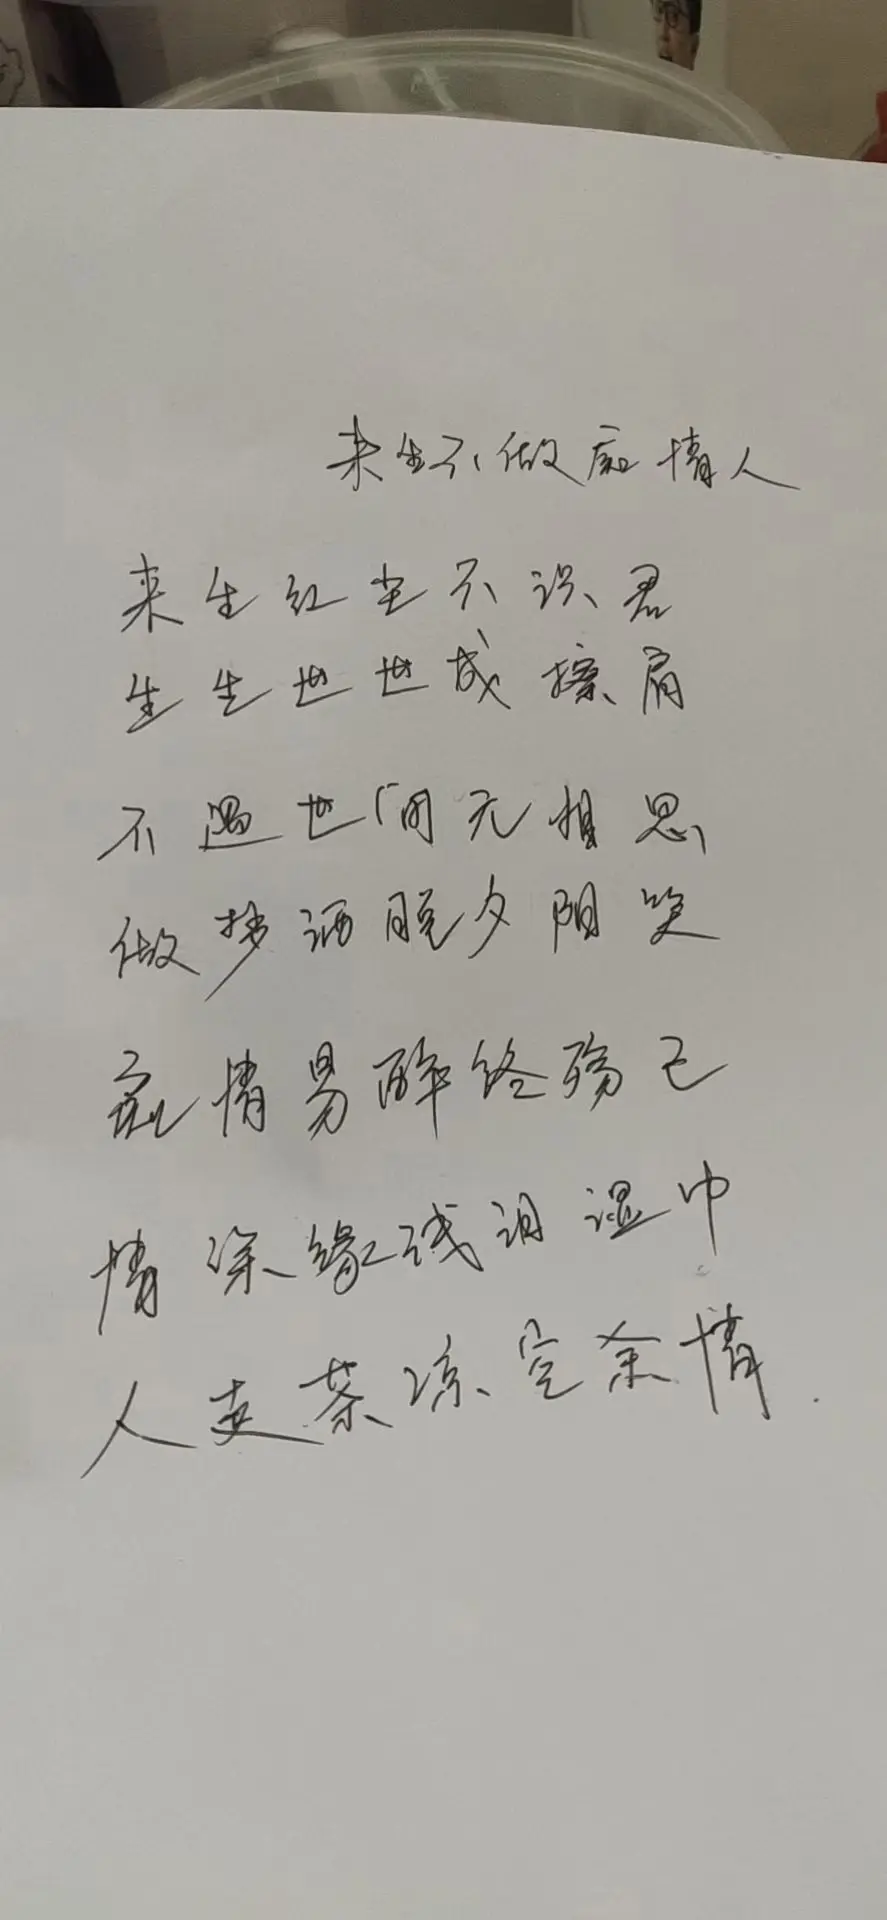 来生不做痴情人
来生红尘不识君
生生世世成擦肩
不遇世间无相思
做抹洒脱夕阳笑
痴情易醉终殇己
情深缘浅泪湿巾
人走茶凉空余情.